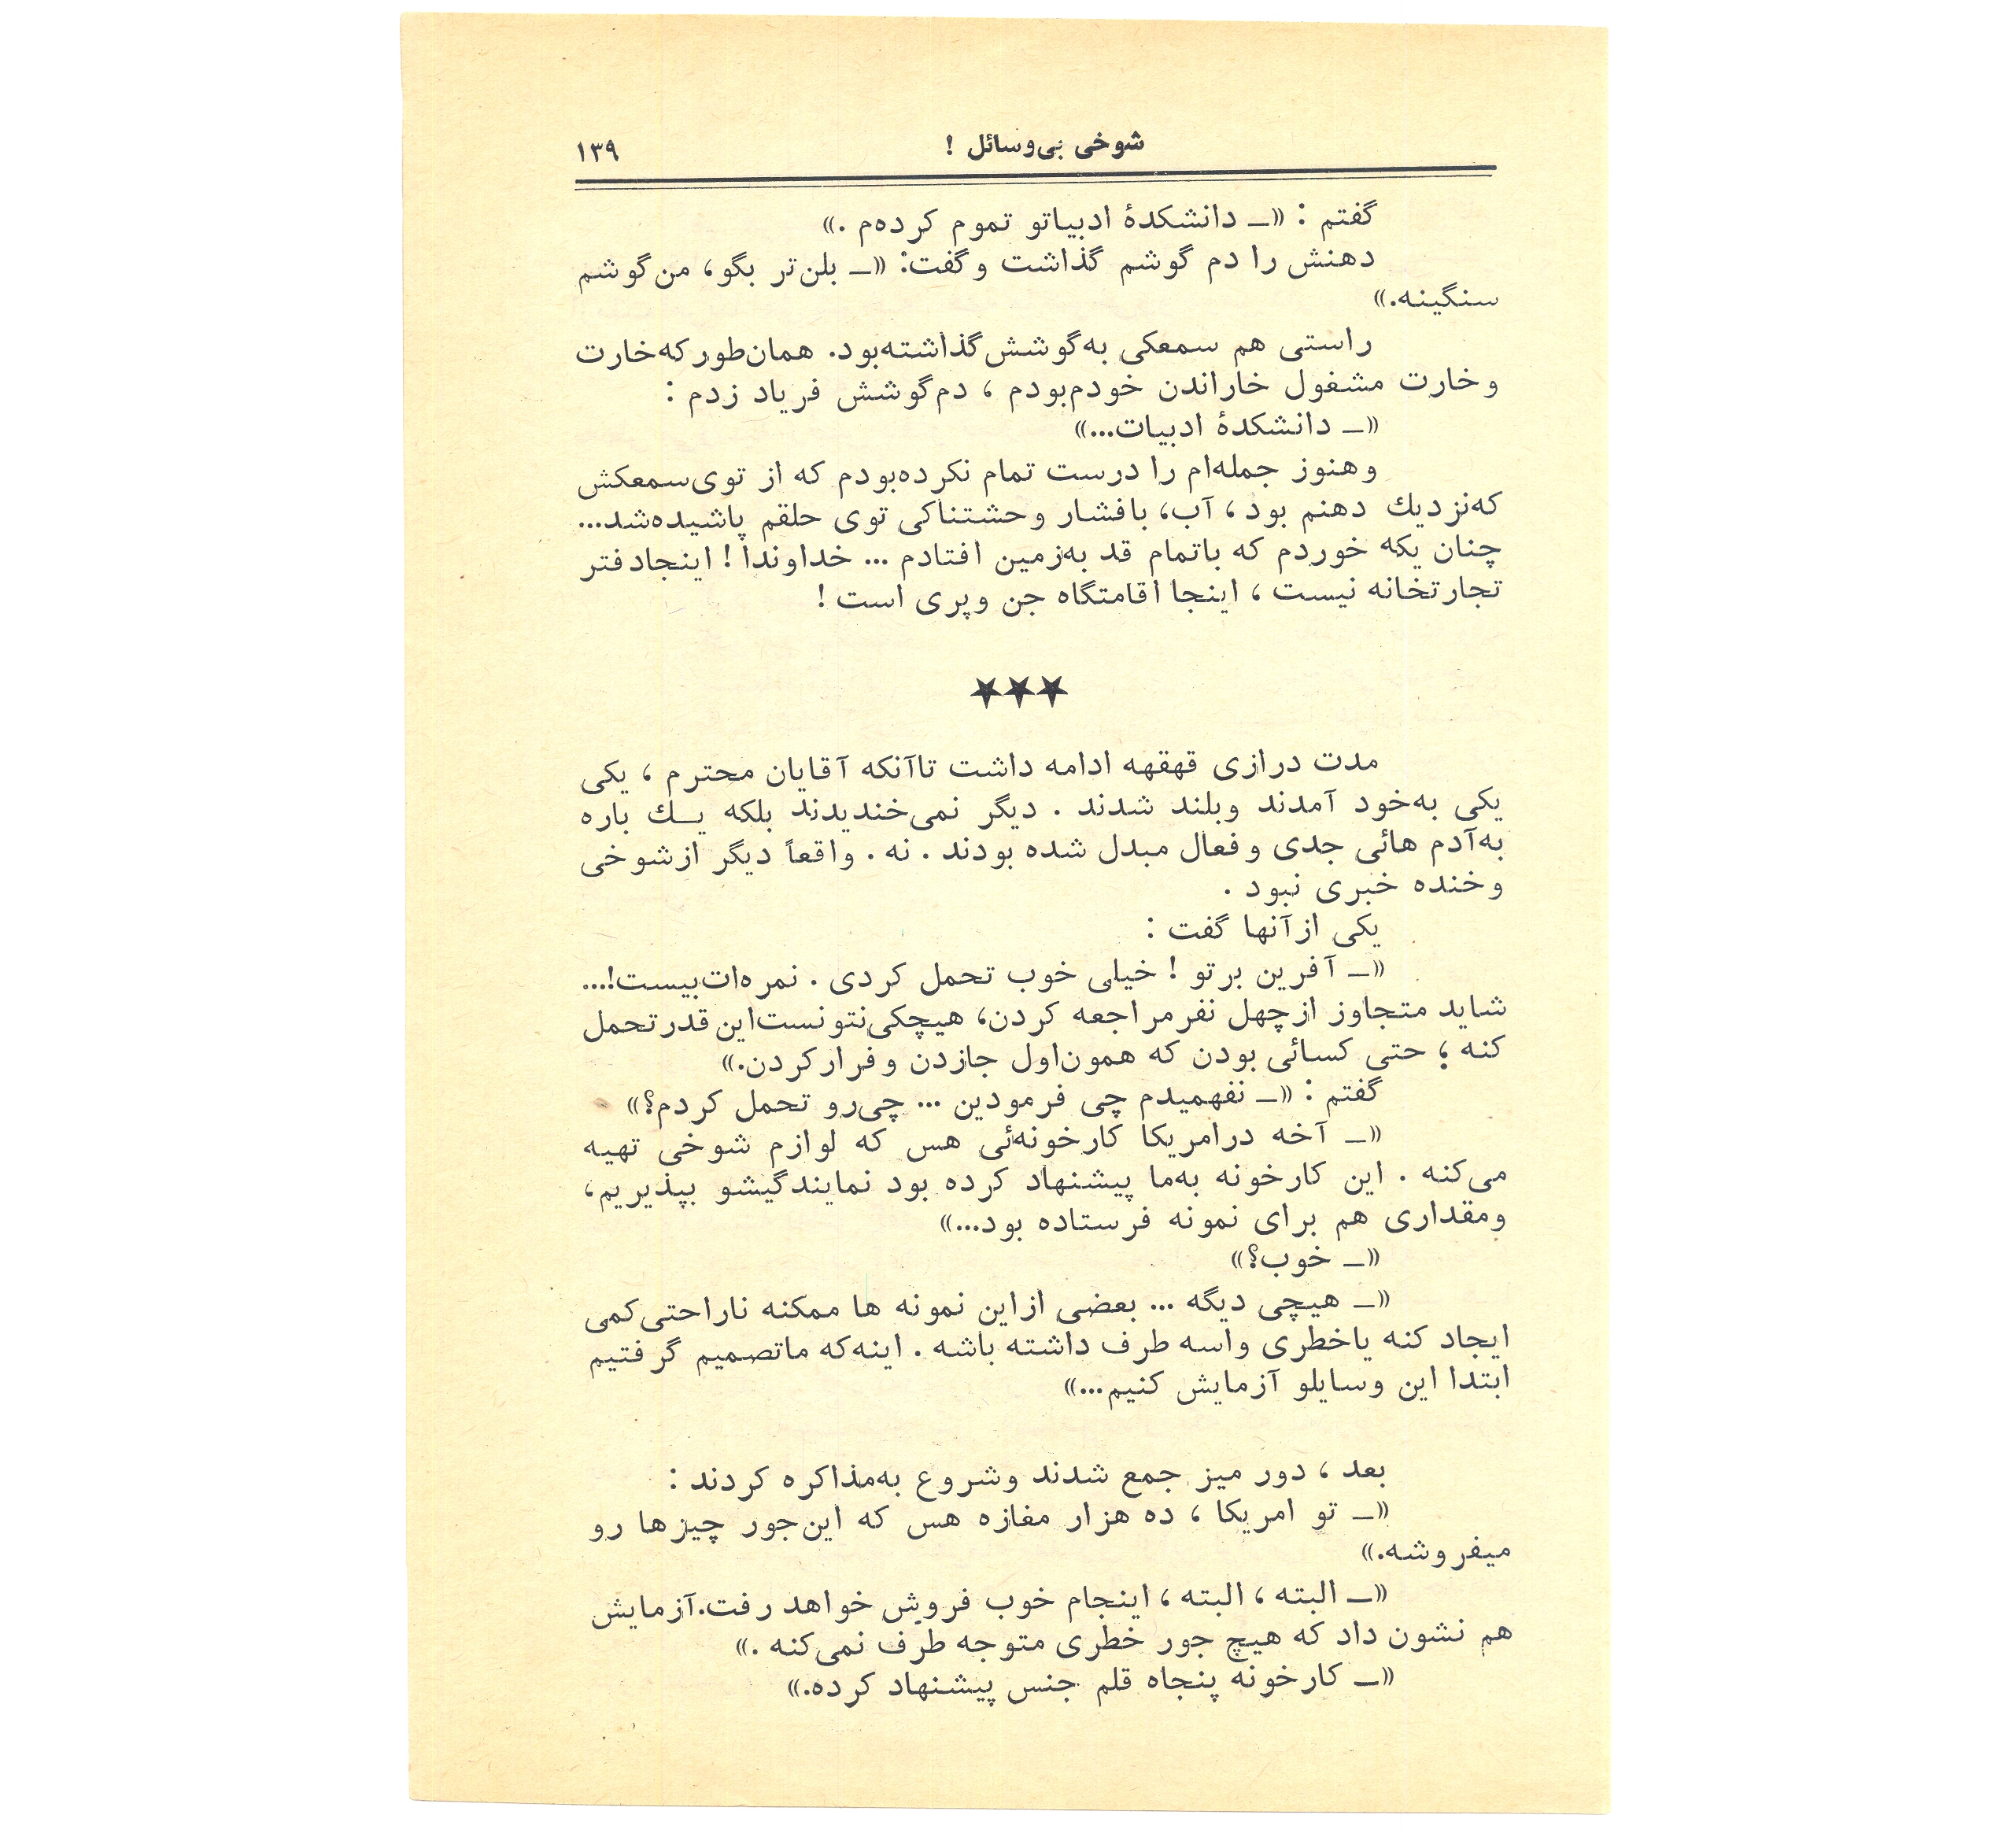 شوخی بی‌وسائل !
۱۳۹
گفتم : «ـ دانشکدهٔ ادبیاتو تموم کرده‌م .»
دهنش را دم گوشم گذاشت و گفت: «ـ بلن‌تر بگو، من گوشم
سنگینه.»
راستی هم سمعکی به‌گوشش گذاشته‌بود. همان‌طور که خارت
و خارت مشغول خاراندن خودم‌بودم ، دم‌گوشش فریاد زدم :
«ـ دانشکدهٔ ادبیات...»
و هنوز جمله‌ام را درست تمام نکرده‌بودم که از توی‌سمعکش
که‌نزدیك دهنم بود ، آب، بافشار وحشتناکی توی حلقم پاشیده‌شد...
چنان یکه خوردم که باتمام قد به‌زمین افتادم ... خداوندا ! اینجا دفتر
تجارتخانه نیست ، اینجا اقامتگاه جن و پری است !
★★★
مدت درازی قهقهه ادامه داشت تاآنکه آقایان محترم ، یکی
یکی به‌خود آمدند وبلند شدند . دیگر نمی‌خندیدند بلکه یـك باره
به‌آدم هائی جدی و فعال مبدل شده بودند . نه . واقعاً دیگر از شوخی
و خنده خبری نبود .
یکی از آنها گفت :
«ـ آفرین بر تو ! خیلی خوب تحمل کردی . نمره‌ات‌بیست!...
شاید متجاوز از چهل نفر مراجعه کردن، هیچکی‌نتونست‌این قدر تحمل
کنه ؛ حتی کسائی بودن که همون‌اول جازدن و فرار کردن.»
گفتم : «ـ نفهمیدم چی فرمودین ... چی‌رو تحمل کردم؟»
«ـ آخه در امریکا کارخونه‌ئی هس که لوازم شوخی تهیه
می‌کنه . این کارخونه به‌ما پیشنهاد کرده بود نمایندگیشو بپذیریم،
و مقداری هم برای نمونه فرستاده بود...»
«ـ خوب؟»
«ـ هیچی دیگه ... بعضی از این نمونه ها ممکنه ناراحتی‌کمی
ایجاد کنه یا خطری واسه طرف داشته باشه . اینه‌که ما تصمیم گرفتیم
ابتدا این وسایلو آزمایش کنیم...»
بعد ، دور میز جمع شدند و شروع به‌مذاکره کردند :
«ـ تو امریکا ، ده هزار مغازه هس که این‌جور چیزها رو
میفروشه.»
«ـ البته ، البته ، اینجام خوب فروش خواهد رفت.آزمایش
هم نشون داد که هیچ جور خطری متوجه طرف نمی‌کنه .»
«ـ کارخونه پنجاه قلم جنس پیشنهاد کرده.»